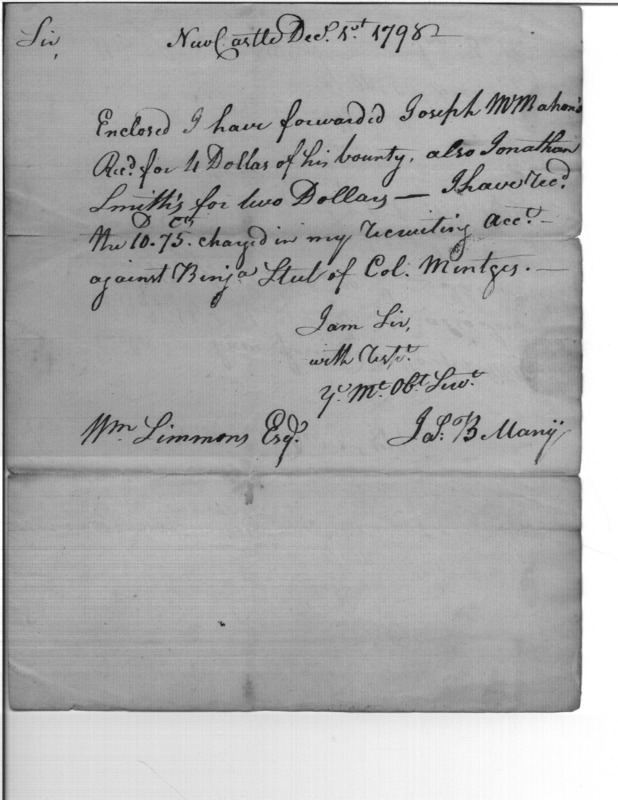 Sir,
New Castle Decr. 1st 1798
Enclosed I have forwarded Joseph McMahon's
Recd. for 4 Dollars of his bounty, also Jonathan
Smith's for two Dollars — I have recd.
D Cts
the 10.75. charged in my recruiting acct. —
against Benja Steel of Col. Mentges. —
I am Sir,
with respt.
Yr. Mt. Obt. Servt.
Wm. Simmons Esqr.
Jas. B Many